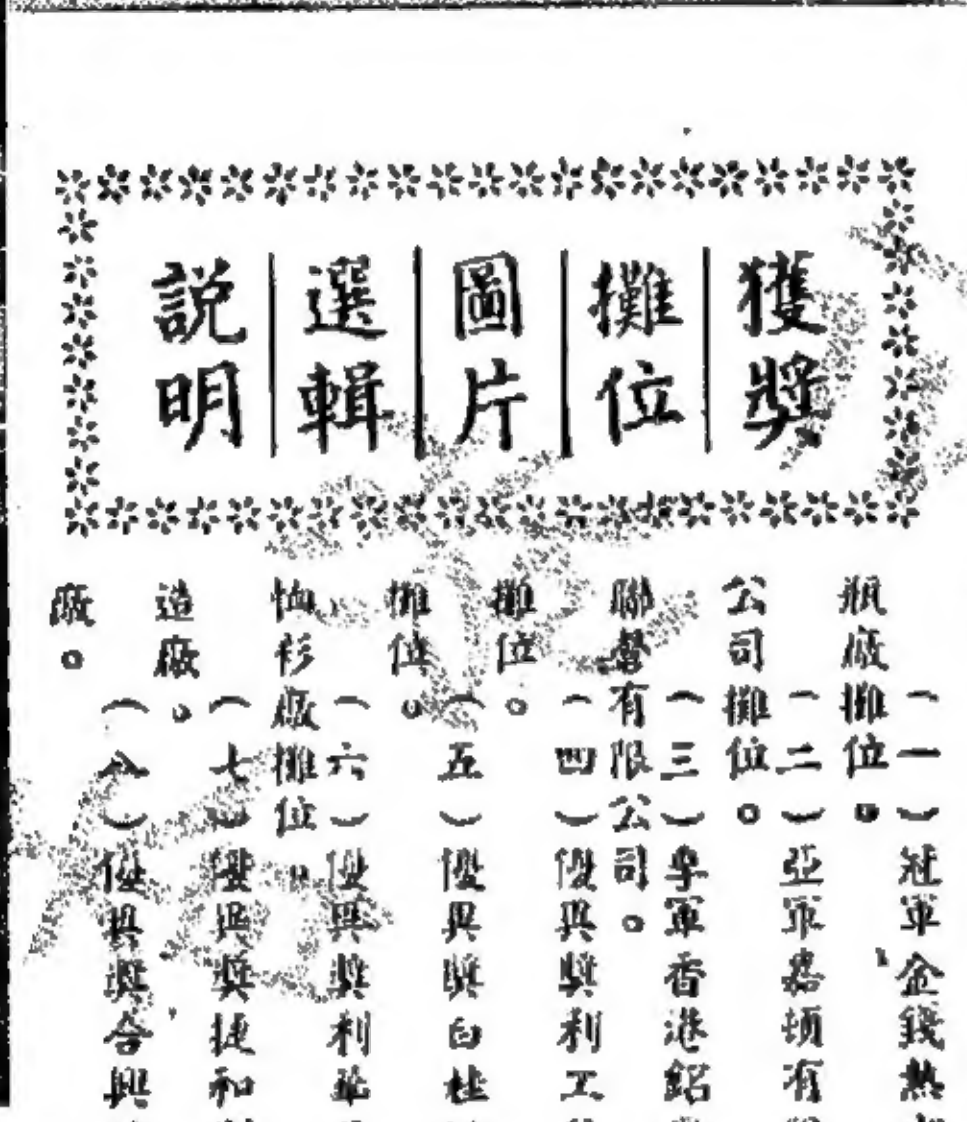 獲獎
攤位
圖片
選輯
說明
(一)冠軍金錢熱
瓶廠攤位。
(二)亞軍嘉頓有
公司攤位。
(三)季軍香港鋁
聯營有限公司。
(四)優異獎利工
攤位。
(五)優異獎白桂
攤位。
(六)優異獎利華
恤衫廠攤位。
(七)優異獎捷和
造廠。
(八)優異獎合興
廠。